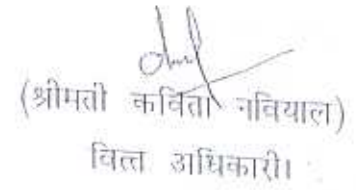 (श्रीमती कविता नवियाल)
वित्त अधिकारी।